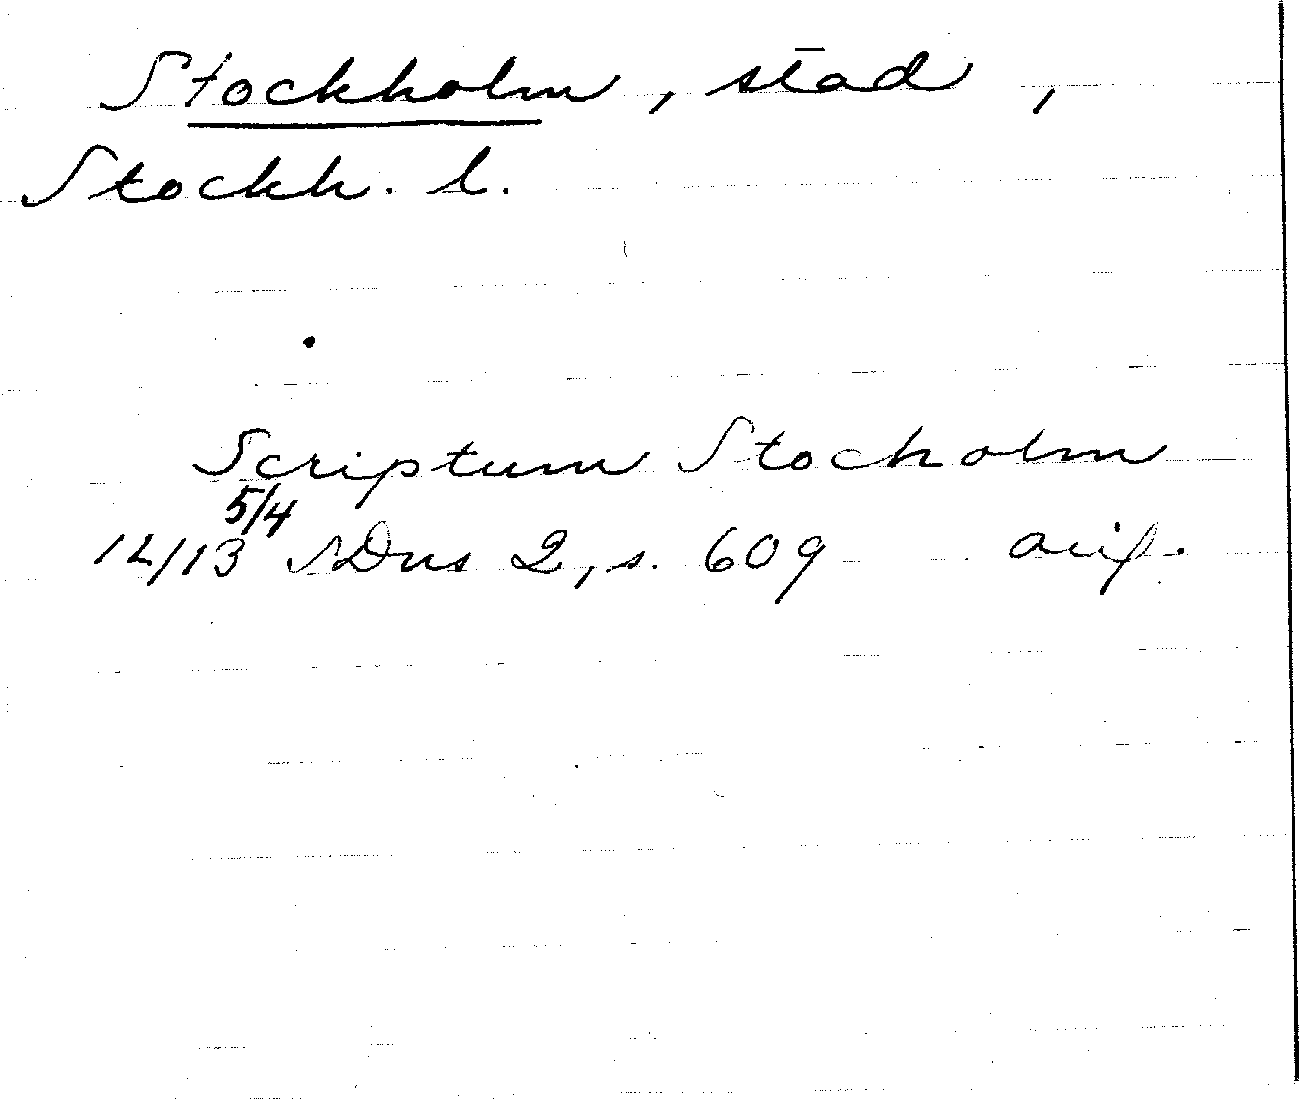 Stockholm, stad,
Stockh. l.
Scriptum Stocholm
5/4
1413 SDns 2, s. 609 avs.